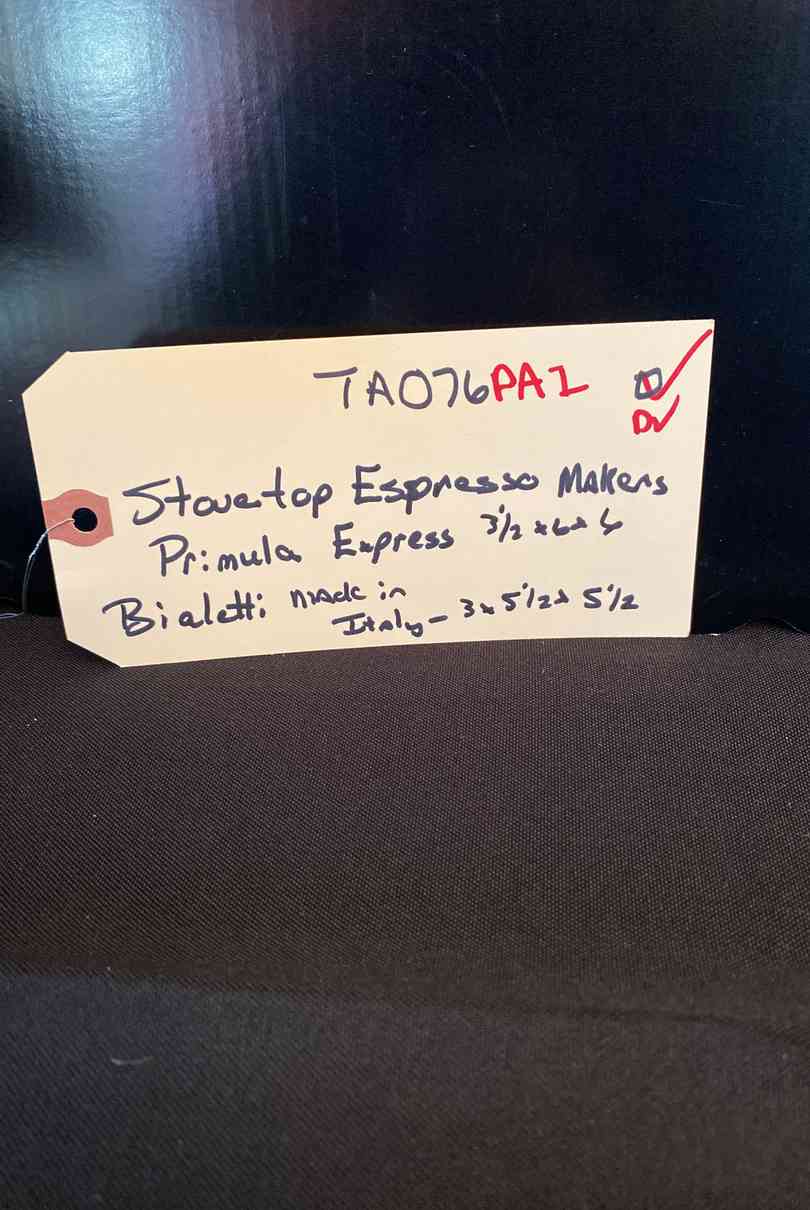 TA076PA1
D
Stovetop Espresso Makers
Primula Express 3 1/2 x 6 x 6
Bialetti made in
Italy - 3 x 5 1/2 x 5 1/2